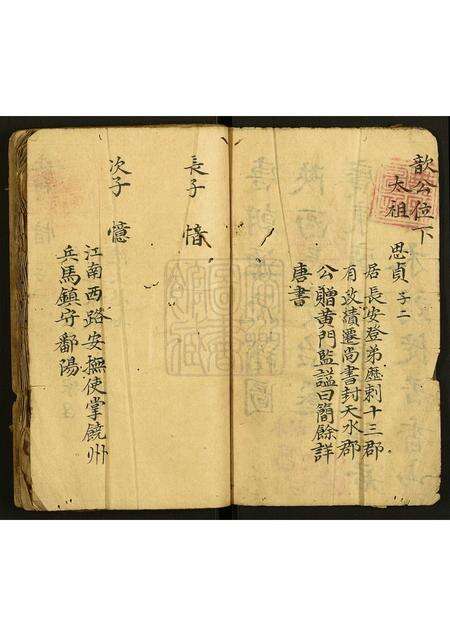 歆公位下
太祖
思貞 子二
居長安登弟歷刺十三郡
有政績遷尚書封天水郡
公贈黄門監謚曰簡餘詳
唐書
長子 愔
次子 憶
江南西路安撫使掌饒州
兵馬鎮守鄱陽